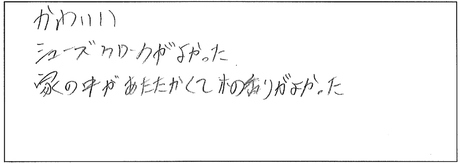 かわいい
シューズクロークがよかった
家の中があたたかくて木の香りがよかった